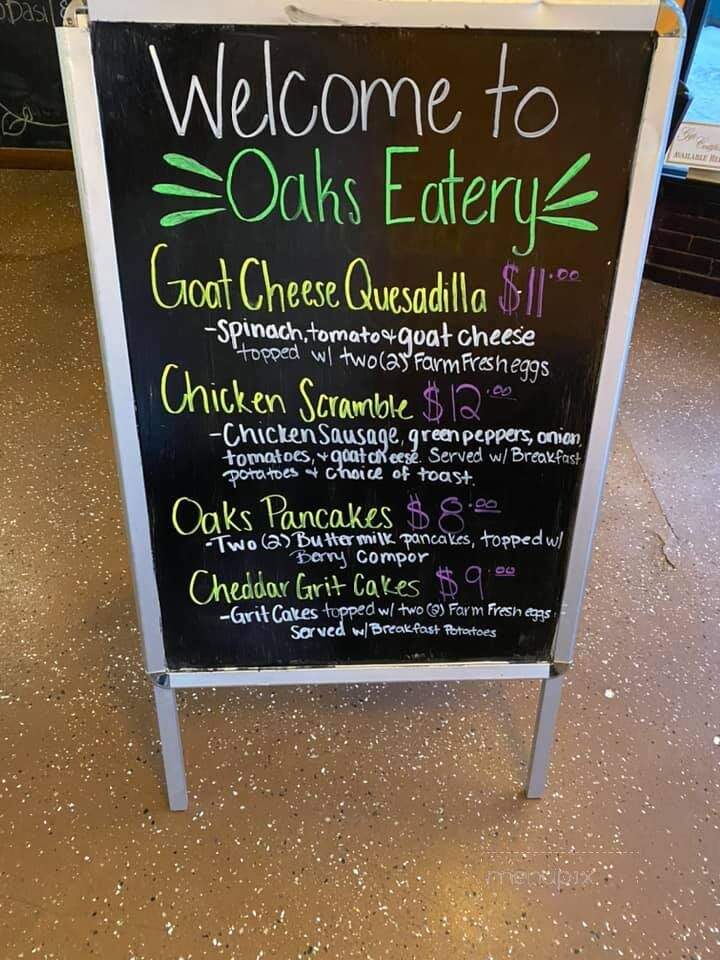 Welcome to
Oaks Eatery
Goat Cheese Quesadilla $11.00
-Spinach, tomato & goat cheese
topped w/ two (2) Farm Fresh eggs
Chicken Scramble $12.00
-Chicken Sausage, green peppers, onion,
tomatoes, & goat cheese. Served w/ Breakfast
potatoes & choice of toast.
Oaks Pancakes $8.00
-Two (2) Buttermilk pancakes, topped w/
Berry Compor
Cheddar Grit Cakes $9.00
-Grit Cakes topped w/ two (2) Farm Fresh eggs.
Served w/ Breakfast Potatoes
AVAILABLE
menupix